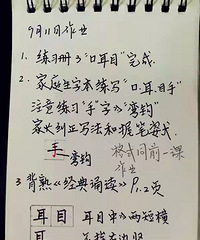 9月11日作业
1、练习册3“口耳目”完成.
2、家庭生字本练写“口、耳、目、手”
注意练习“手”字的“弯钩”
家长纠正写法和握笔姿势.
手 弯钩 格式同前一课
作业
3 背熟《经典诵读》P1.2页
耳 目 耳目中的两短横